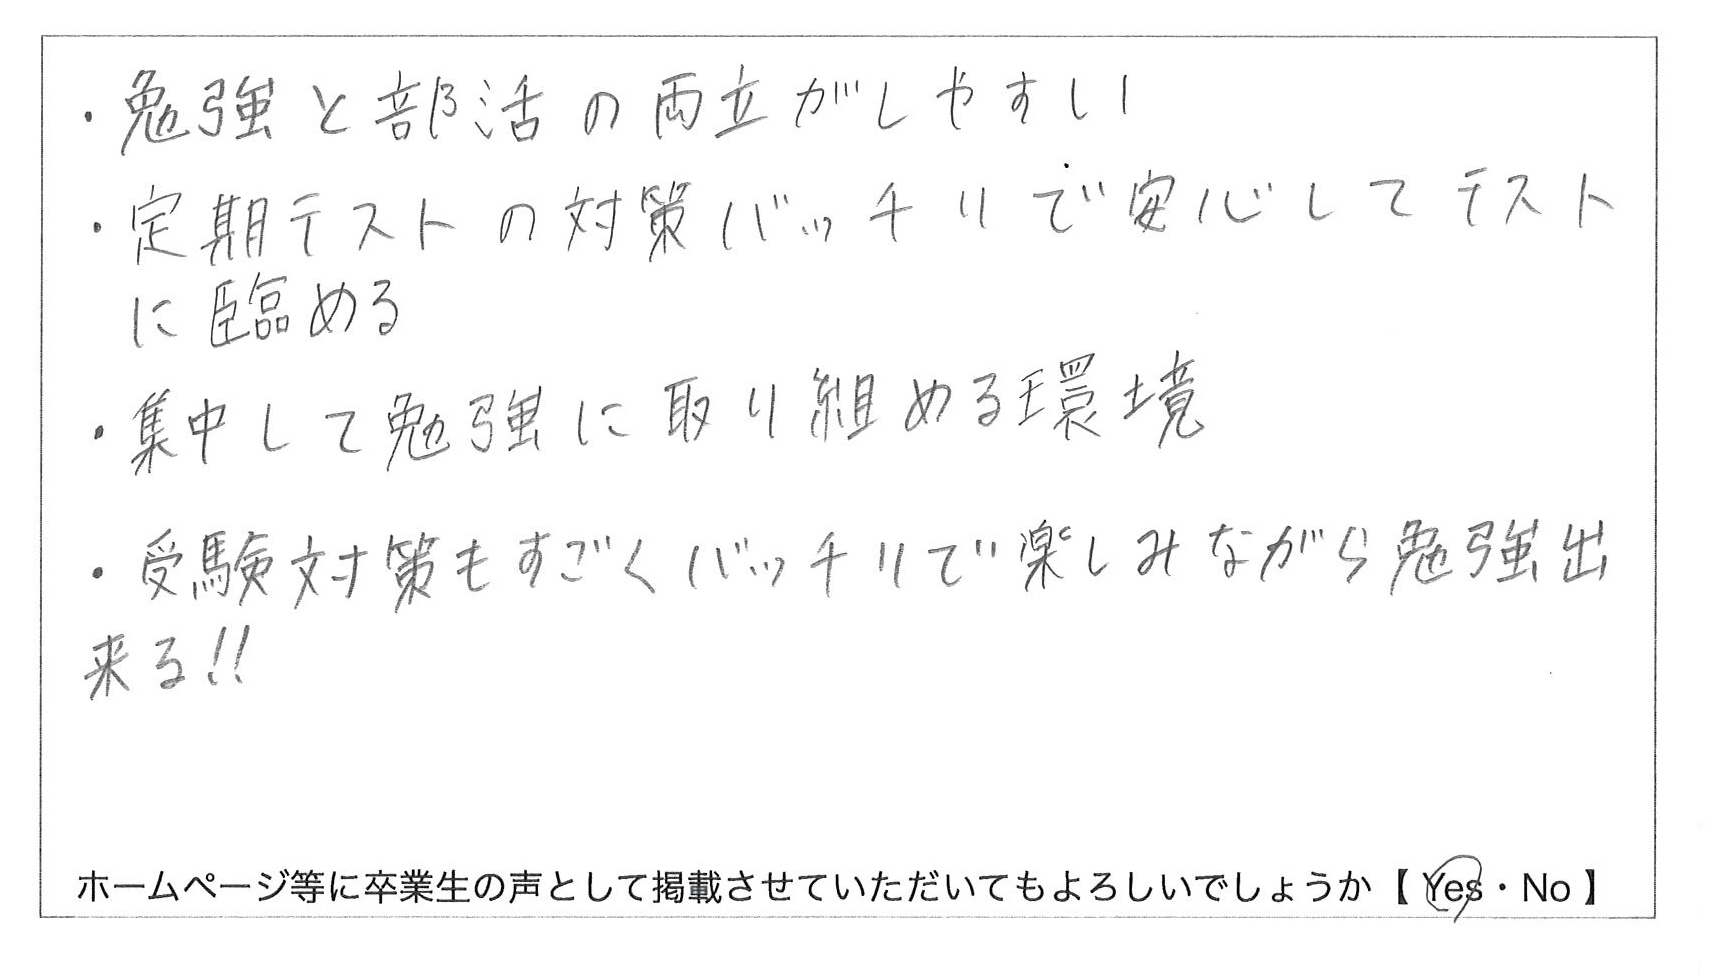 ・勉強と部活の両立がしやすい
・定期テストの対策バッチリで安心してテスト
に臨める
・集中して勉強に取り組める環境
・受験対策もすごくバッチリで楽しみながら勉強出
来る!!
ホームページ等に卒業生の声として掲載させていただいてもよろしいでしょうか【 Yes・No 】